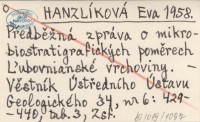 HANZLÍKOVÁ Eva 1958.
Předběžná zpráva o mikro-
biostratigrafických poměrech
Ľubovnianské vrchoviny. —
Věstník Ústředního Ústavu
Geologického 34, nr 6: 429-
-440, tab. 3,